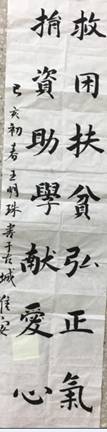 救困扶貧弘正氣
捐資助學献愛心
己亥初春王明珠書于古城淮安